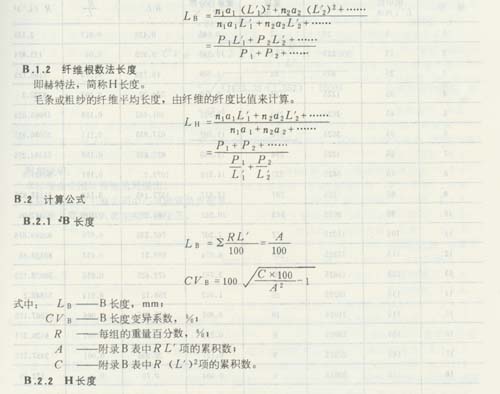 L_B = n₁a₁(L'₁)²+n₂a₂(L'₂)²+…… / n₁a₁L'₁+n₂a₂L'₂+……
= P₁L'₁+P₂L'₂+…… / P₁+P₂+……
B.1.2 纤维根数法长度
即赫特法，简称H长度。
毛条或粗纱的纤维平均长度，由纤维的纤度比值来计算。
L_H = n₁a₁L'₁+n₂a₂L'₂+…… / n₁a₁+n₂a₂+……
= P₁+P₂+…… / P₁/L'₁ + P₂/L'₂
B.2 计算公式
B.2.1 B长度
L_B = Σ RL'/100 = A/100
CV_B = 100 √(C×100/A² −1)
式中：L_B——B长度，mm；
CV_B——B长度变异系数，%；
R ——每组的重量百分数，%；
A ——附录B表中RL'项的累积数；
C ——附录B表中R(L')²项的累积数。
B.2.2 H长度